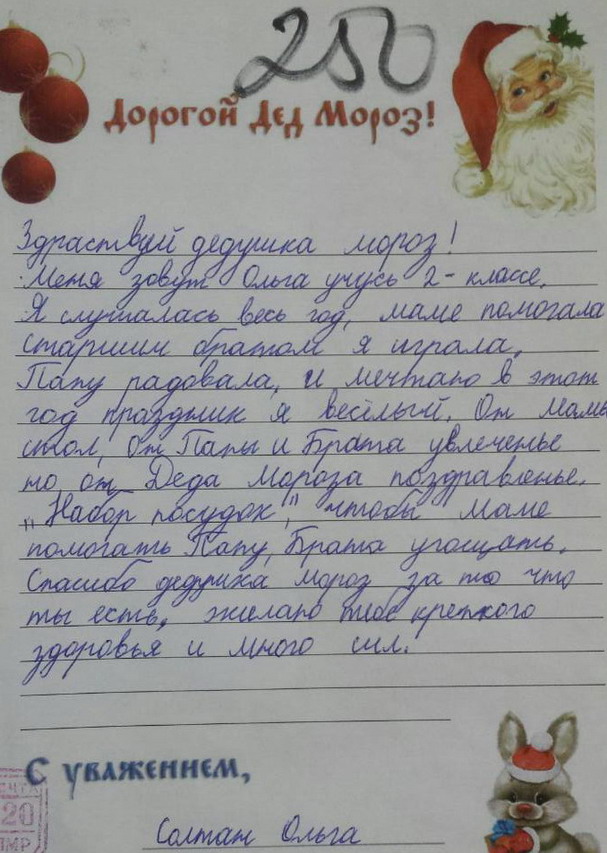 250
Дорогой Дед Мороз!
Здраствуй дедушка мороз!
Меня зовут Ольга учусь 2-классе.
Я слушалась весь год, маме помогала
старшим братом я играла.
Папу радовала, и мечтаю в этот
год праздник я весёлый. От мамы
стол, от Папы и Брата увлеченье
но от Деда Мороза поздравленье.
"Набор посудок", чтобы маме
помогать Папу, Брата угощать.
Спасибо дедушка мороз за то что
ты есть, желаю тебе крепкого
здоровья и много сил.
С уважением,
20
ПМР
Солтан Ольга